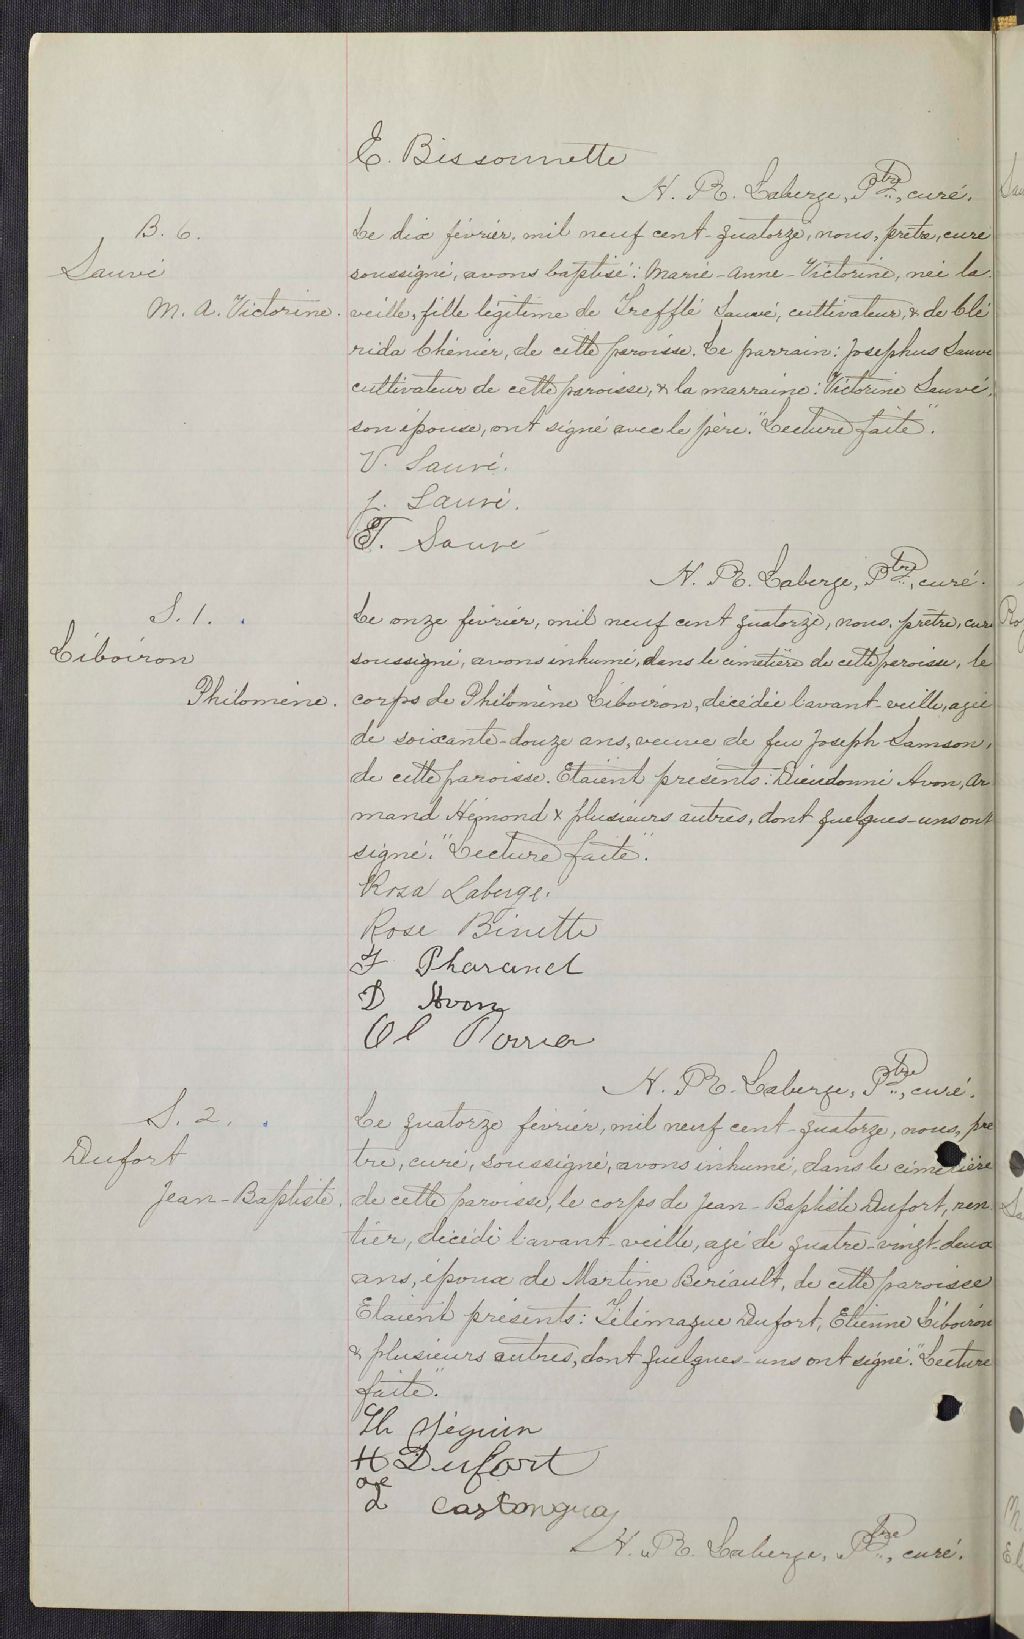 E. Bissonnette
H. R. Laberge, Ptre, curé.
B. 6.
Sauvé
M. A. Victorine.
Le dix février, mil neuf cent-quatorze, nous, prêtre, curé
soussigné, avons baptisé: Marie-Anne-Victorine, née la
veille, fille légitime de Trefflé Sauvé, cultivateur, & de Clé
rida Chénier, de cette paroisse. Le parrain: Josephus Sauvé
cultivateur de cette paroisse, & la marraine: Victorine Sauvé,
son épouse, ont signé avec le père. "Lecture faite".
V. Sauvé.
J. Sauvé.
T. Sauvé
H. R. Laberge, Ptre, curé.
S. 1.
Liboiron
Philomène.
Le onze février, mil neuf cent quatorze, nous, prêtre, curé
soussigné, avons inhumé, dans le cimetière de cette paroisse, le
corps de Philomène Liboiron, décédée l'avant-veille, agée
de soixante-douze ans, veuve de feu Joseph Samson,
de cette paroisse. Etaient présents: Dieudonné Avon, Ar
mand Hémond & plusieurs autres, dont quelques-uns ont
signé. "Lecture faite".
Rosa Laberge.
Rose Binette
F Pharand
D Avon
H. R. Laberge, Ptre, curé.
S. 2.
Dufort
Jean-Baptiste.
Le quatorze février, mil neuf cent-quatorze, nous, prê
tre, curé, soussigné, avons inhumé, dans le cimetière
de cette paroisse, le corps de Jean-Baptiste Dufort, ren
tier, décédé l'avant-veille, agé de quatre-vingt-deux
ans, époux de Martine Beriault, de cette paroisse
Etaient présents: Télémaque Dufort, Etienne Liboiron
& plusieurs autres, dont quelques-uns ont signé. "Lecture
faite".
Th Séguin
H Dufort
Castonguay
H. R. Laberge, Ptre, curé.